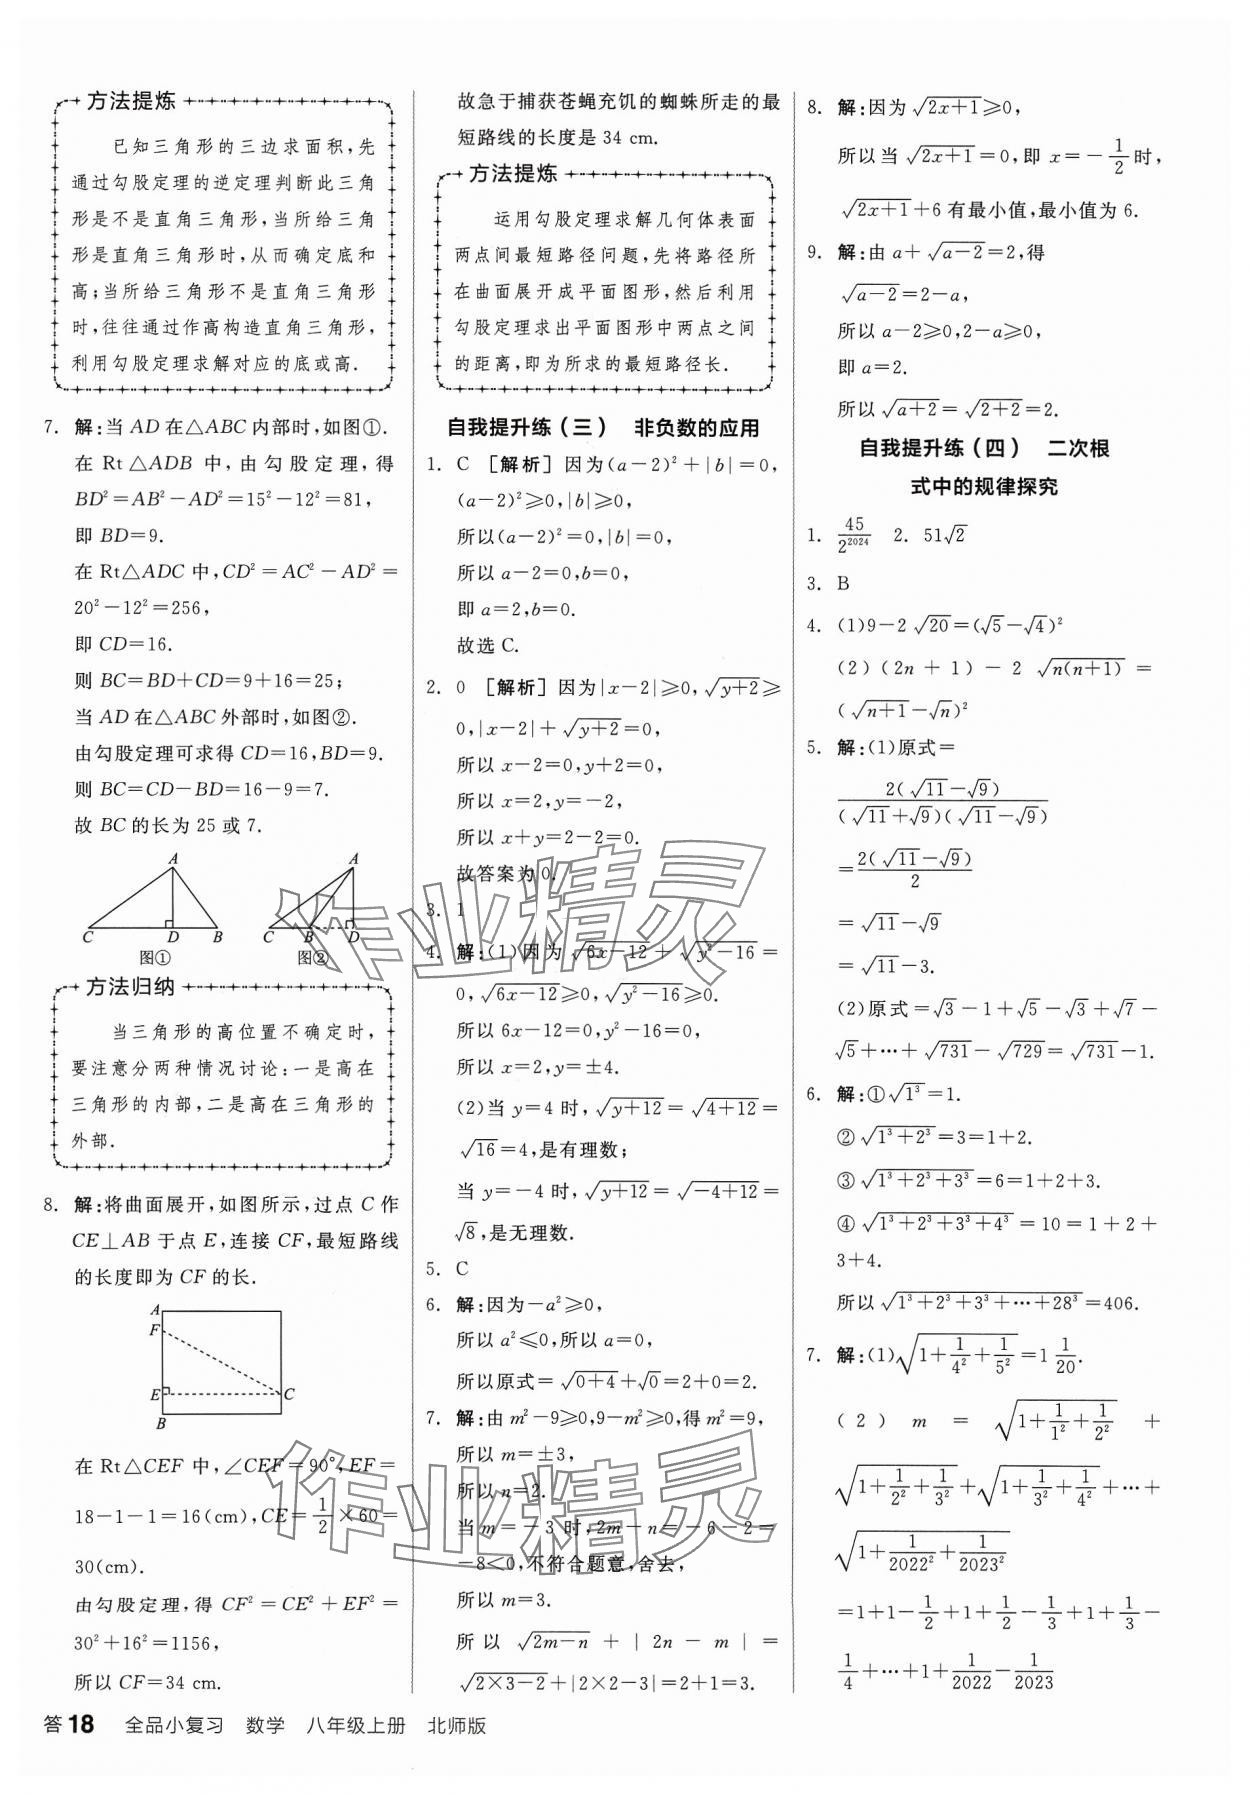 方法提炼
已知三角形的三边求面积,先
通过勾股定理的逆定理判断此三角
形是不是直角三角形,当所给三角
形是直角三角形时,从而确定底和
高;当所给三角形不是直角三角形
时,往往通过作高构造直角三角形,
利用勾股定理求解对应的底或高.
7. 解:当 AD 在△ABC 内部时,如图①.
在 Rt△ADB 中,由勾股定理,得
BD²=AB²-AD²=15²-12²=81,
即 BD=9.
在 Rt△ADC 中,CD²=AC²-AD²=
20²-12²=256,
即 CD=16.
则 BC=BD+CD=9+16=25;
当 AD 在△ABC 外部时,如图②.
由勾股定理可求得 CD=16,BD=9.
则 BC=CD-BD=16-9=7.
故 BC 的长为 25 或 7.
A A
C D B C B D
图① 图②
方法归纳
当三角形的高位置不确定时,
要注意分两种情况讨论:一是高在
三角形的内部,二是高在三角形的
外部.
8. 解:将曲面展开,如图所示,过点 C 作
CE⊥AB 于点 E,连接 CF,最短路线
的长度即为 CF 的长.
A
F
E C
B
在 Rt△CEF 中,∠CEF=90°,EF=
18-1-1=16(cm),CE=1/2×60=
30(cm).
由勾股定理,得 CF²=CE²+EF²=
30²+16²=1156,
所以 CF=34 cm.
故急于捕获苍蝇充饥的蜘蛛所走的最
短路线的长度是 34 cm.
方法提炼
运用勾股定理求解几何体表面
两点间最短路径问题,先将路径所
在曲面展开成平面图形,然后利用
勾股定理求出平面图形中两点之间
的距离,即为所求的最短路径长.
自我提升练(三) 非负数的应用
1. C [解析]因为(a-2)²+|b|=0,
(a-2)²≥0,|b|≥0,
所以(a-2)²=0,|b|=0,
所以 a-2=0,b=0,
即 a=2,b=0.
故选 C.
2. 0 [解析]因为|x-2|≥0,√(y+2)≥
0,|x-2|+√(y+2)=0,
所以 x-2=0,y+2=0,
所以 x=2,y=-2,
所以 x+y=2-2=0.
故答案为 0.
3. 1
4. 解:(1)因为√(6x-12)+√(y²-16)=
0,√(6x-12)≥0,√(y²-16)≥0.
所以 6x-12=0,y²-16=0,
所以 x=2,y=±4.
(2)当 y=4 时,√(y+12)=√(4+12)=
√16=4,是有理数;
当 y=-4 时,√(y+12)=√(-4+12)=
√8,是无理数.
5. C
6. 解:因为-a²≥0,
所以 a²≤0,所以 a=0,
所以原式=√(0+4)+√0=2+0=2.
7. 解:由 m²-9≥0,9-m²≥0,得 m²=9,
所以 m=±3,
所以 n=2.
当 m=-3 时,2m-n=-6-2=
-8<0,不符合题意,舍去,
所以 m=3.
所以 √(2m-n)+|2n-m|=
√(2×3-2)+|2×2-3|=2+1=3.
8. 解:因为√(2x+1)≥0,
所以当√(2x+1)=0,即 x=-1/2时,
√(2x+1)+6 有最小值,最小值为 6.
9. 解:由 a+√(a-2)=2,得
√(a-2)=2-a,
所以 a-2≥0,2-a≥0,
即 a=2.
所以√(a+2)=√(2+2)=2.
自我提升练(四) 二次根
式中的规律探究
1. 45/2²⁰²⁴ 2. 51√2
3. B
4. (1)9-2√20=(√5-√4)²
(2)(2n+1)-2√(n(n+1))=
(√(n+1)-√n)²
5. 解:(1)原式=
2(√11-√9)/((√11+√9)(√11-√9))
=2(√11-√9)/2
=√11-√9
=√11-3.
(2)原式=√3-1+√5-√3+√7-
√5+…+√731-√729=√731-1.
6. 解:①√(1³)=1.
②√(1³+2³)=3=1+2.
③√(1³+2³+3³)=6=1+2+3.
④√(1³+2³+3³+4³)=10=1+2+
3+4.
所以√(1³+2³+3³+…+28³)=406.
7. 解:(1)√(1+1/4²+1/5²)=1 1/20.
(2)m=√(1+1/1²+1/2²)+
√(1+1/2²+1/3²)+√(1+1/3²+1/4²)+…+
√(1+1/2022²+1/2023²)
=1+1-1/2+1+1/2-1/3+1+1/3-
1/4+…+1+1/2022-1/2023
答18 全品小复习 数学 八年级上册 北师版
作业精灵
作业精灵